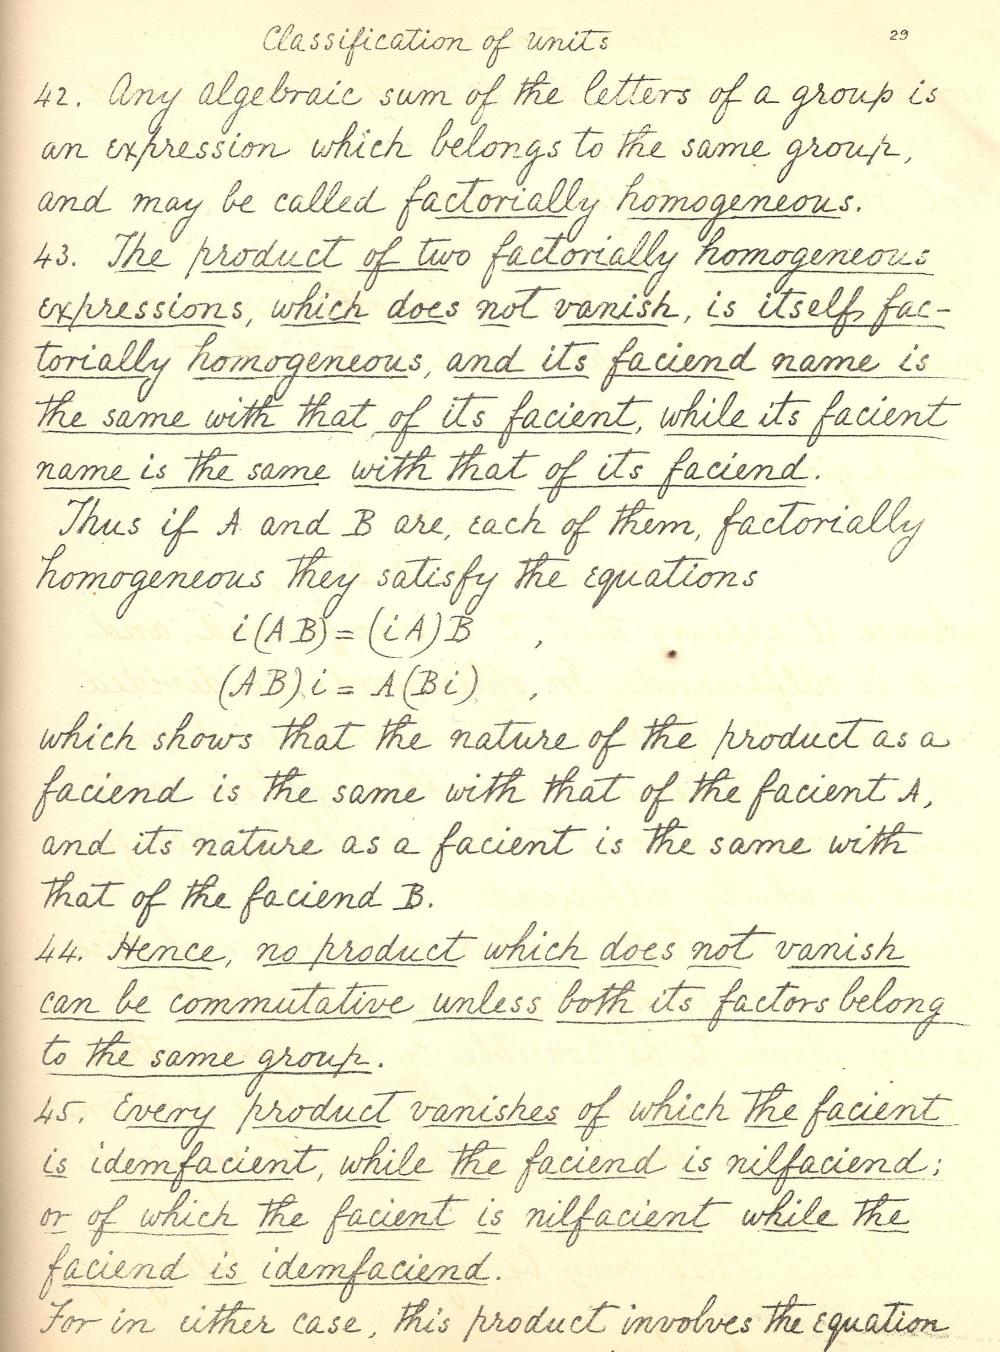 Classification of units 29
42. Any algebraic sum of the letters of a group is
an expression which belongs to the same group,
and may be called factorially homogeneous.
43. The product of two factorially homogeneous
expressions, which does not vanish, is itself fac-
torially homogeneous, and its faciend name is
the same with that of its facient, while its facient
name is the same with that of its faciend.
Thus if A and B are, each of them, factorially
homogeneous they satisfy the equations
i(AB) = (iA)B ,
(AB)i = A(Bi) ,
which shows that the nature of the product as a
faciend is the same with that of the facient A,
and its nature as a facient is the same with
that of the faciend B.
44. Hence, no product which does not vanish
can be commutative unless both its factors belong
to the same group.
45. Every product vanishes of which the facient
is idemfacient, while the faciend is nilfaciend;
or of which the facient is nilfacient while the
faciend is idemfaciend.
For in either case, this product involves the equation